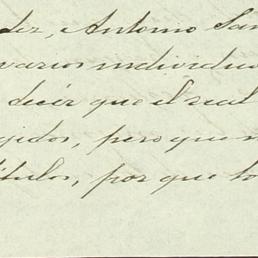 der, Antonio San
varios individuo
decir que el real
gidos, pero que n
títulos, por que to